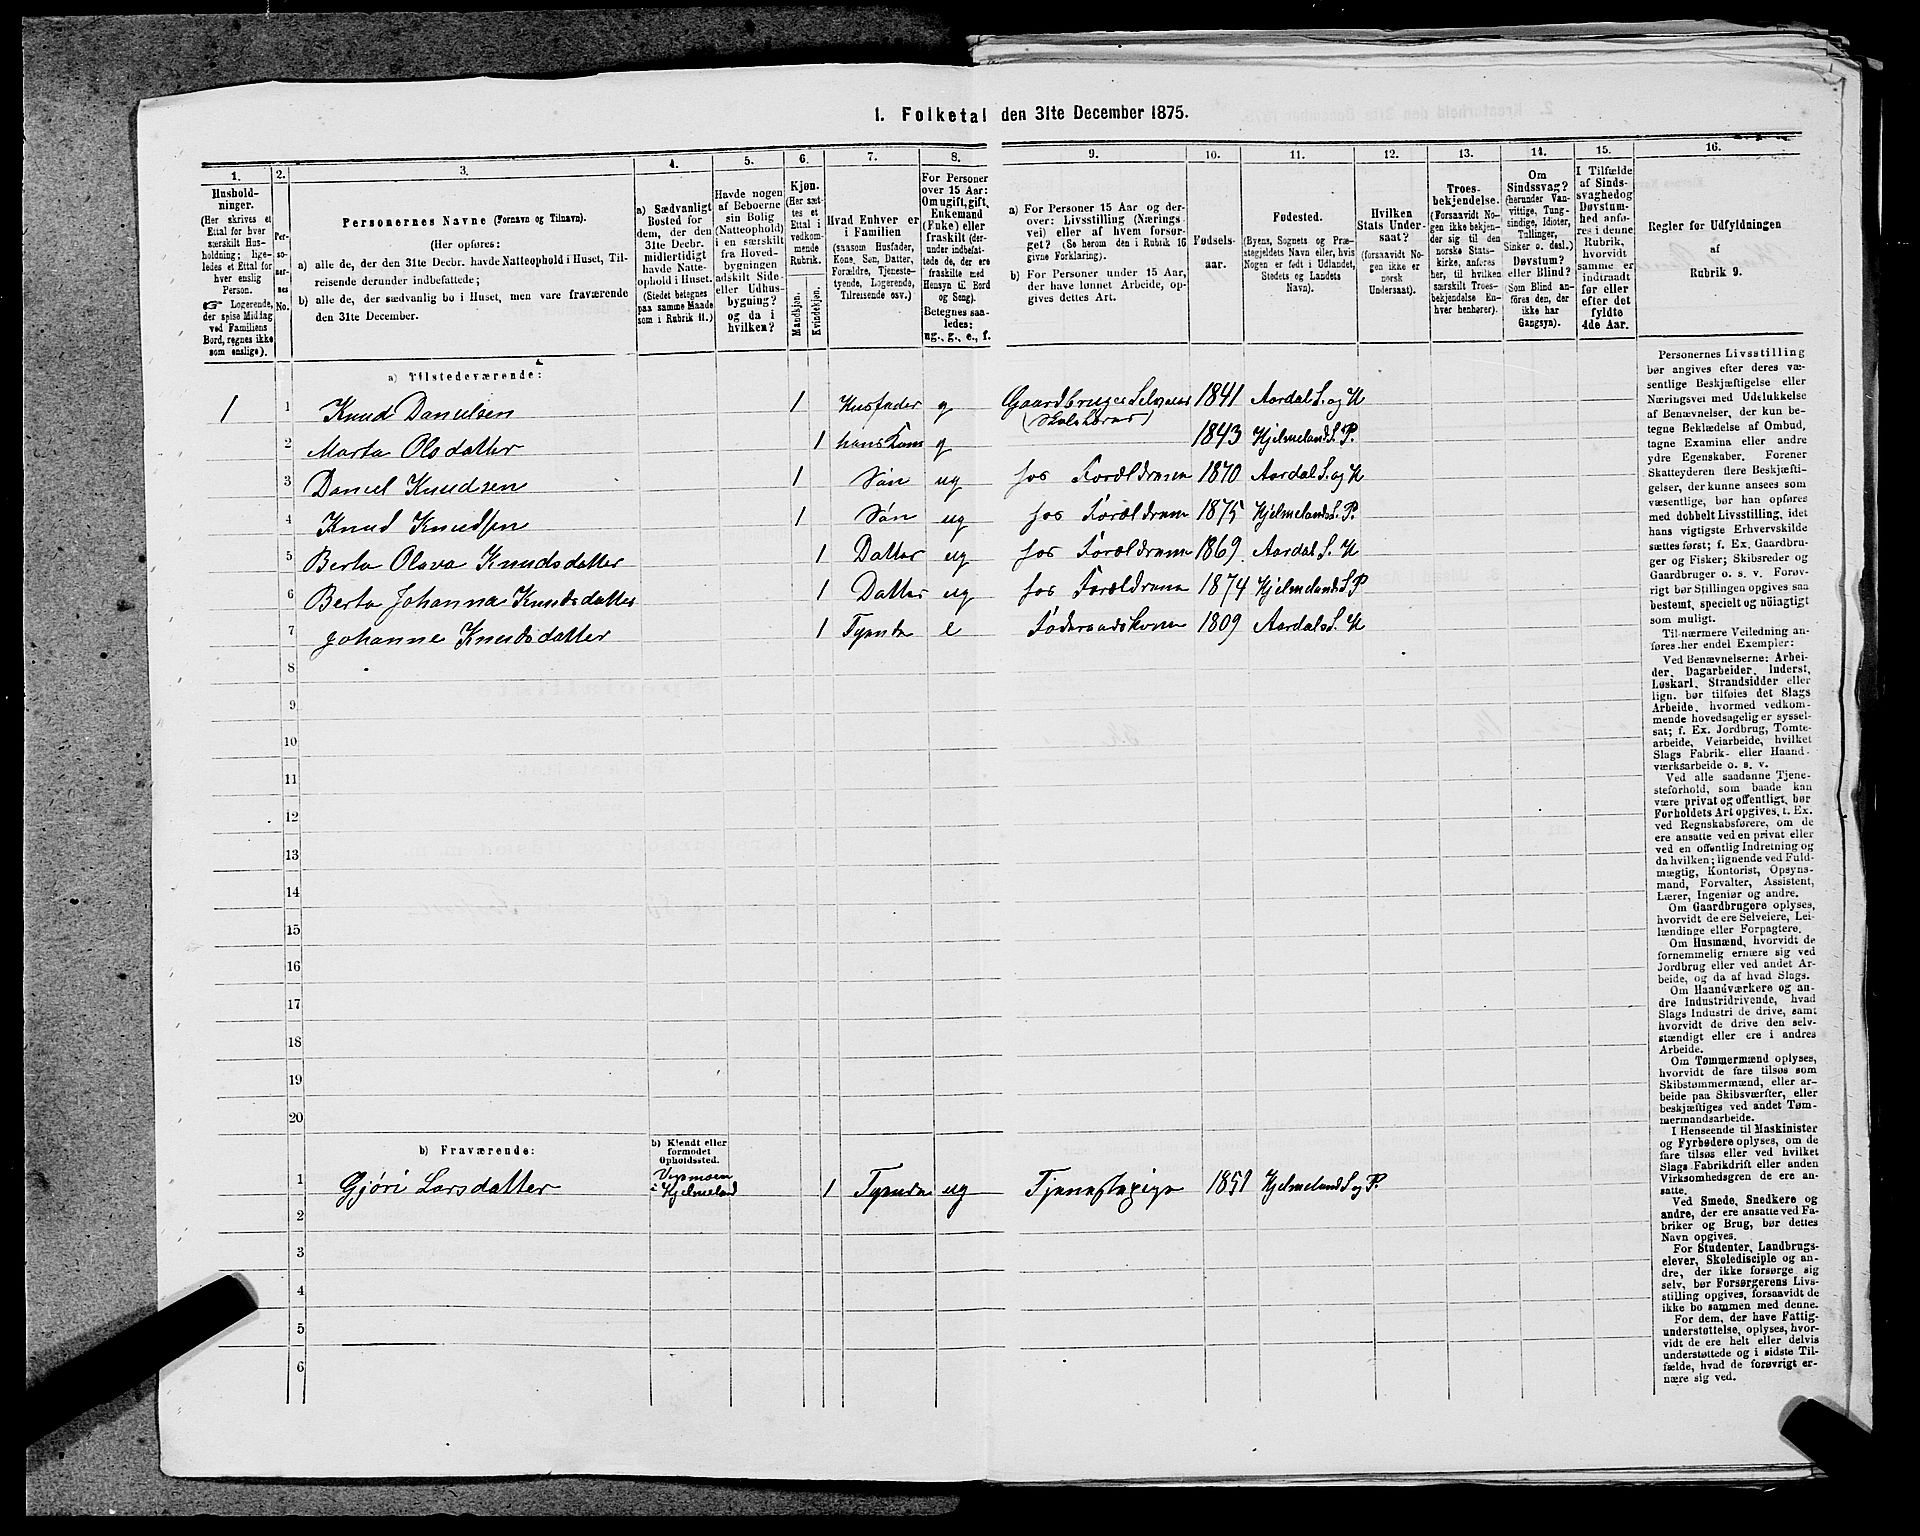 1. Folketal den 31te December 1875.
1. 2. 3. 4. 5. 6. 7. 8. 9. 10. 11. 12. 13. 14. 15. 16.
Hushold-
ninger.
(Her skrives et
Ettal for hver
særskilt Hus-
holdning; lige-
ledes et Ettal for
hver enslig
Person.
☞ Logerende,
der spise Middag
ved Familiens
Bord, regnes ikke
som enslige).
Per-
so-
ner-
nes
No.
Personernes Navne (Fornavn og Tilnavn).
(Her opføres:
a) alle de, der den 31te Decbr. havde Natteophold i Huset, Til-
reisende derunder indbefattede;
b) alle de, der sædvanlig bo i Huset, men vare fraværende
den 31te December.
a) Sædvanligt
Bosted for
dem, der den
31te Decbr.
midlertidigt
havde Natte-
ophold i Huset.
(Stedet betegnes
paa samme Maade
som i Rubrik 11.)
Havde nogen
af Beboerne
sin Bolig
(Natteophold)
i en særskilt
fra Hoved-
bygningen
adskilt Side-
eller Udhus-
bygning?
og da i
hvilken?
Kjøn.
(Her sæt-
tes et
Ettal i
vedkom-
mende
Rubrik.
Mandkjøn.
Kvindekjøn.
Hvad Enhver er
i Familien
(saasom Husfader,
Kone, Søn, Datter,
Forældre, Tjeneste-
tyende, Logerende,
Tilreisende osv.)
For Personer
over 15 Aar:
Om ugift, gift,
Enkemand
(Enke) eller
fraskilt (der-
under indbefat-
tede de, der ere
fraskilte med
Hensyn til Bord
og Seng).
Betegnes saa-
ledes:
ug., g., e., f.
a) For Personer 15 Aar og der-
over: Livsstilling (Nærings-
vei) eller af hvem forsør-
get? (Se herom den i Rubrik 16
givne Forklaring).
b) For Personer under 15 Aar,
der have lønnet Arbeide, op-
gives dettes Art.
Fødsels-
aar.
Fødested.
(Byens, Sognets og Præ-
stegjeldets Navn eller, hvis
Nogen er født i Udlandet,
Stedets og Landets
Navn).
Hvilken
Stats Under-
saat?
(forsaavidt No-
gen ikke er
norsk
Undersaat).
Troes-
bekjendelse.
(Forsaavidt No-
gen ikke bekjen-
der sig til den
norske Stats-
kirke, anføres
her, til hvilken
særskilt Troes-
bekjendelse En-
hver henhører).
Om
Sindssvag?
(herunder Van-
vittige, Tung-
sindige, Idioter,
Tullinger,
Sinker o. desl.)
Døvstum?
eller Blind?
(Som Blind an-
føres den, der
ikke har
Gangsyn).
I Tilfælde
af Sinds-
svaghed og
Døvstum-
hed anfø-
res i denne
Rubrik,
hvorvidt
samme er
indtraadt
før eller
efter det
fyldte
4de Aar.
Regler for Udfyldningen
af
Rubrik 9.
a) Tilstedeværende:
1 1 Knud Danielsen 1 Husfader g Gaardbruger Selveier 1841 Aardal S. og H
(Skolelærer)
2 Marta Olsdatter 1 hans Kone g 1843 Hjelmeland S. P.
3 Daniel Knudsen 1 Søn ug hos Forældrene 1870 Aardal S. og H
4 Knud Knudsen 1 Søn ug hos Forældrene 1875 Hjelmelands S. P.
5 Berta Olava Knudsdatter 1 Datter ug hos Forældrene 1869 Aardal S. H
6 Berta Johanna Knudsdatter 1 Datter ug hos Forældrene 1874 Hjelmeland S P
7 Johanne Knudsdatter 1 Tyende e Føderaadskone 1809 Aardals S. H
8
9
10
11
12
13
14
15
16
17
18
19
20
b) Fraværende:
b) Kjendt eller
formodet
Opholdssted.
1 Gjøri Larsdatter i Hjelmeland 1 Tyende ug Tjenestepige 1851 Hjelmeland S og P.
2
3
4
5
6
Personernes Livsstilling
bør angives efter deres væ-
sentlige Beskjæftigelse eller
Næringsvei med Udelukkelse
af Benævnelser, der kun be-
tegne Beklædelse af Ombud,
tagne Examina eller andre
ydre Egenskaber. Forener
Skatteyderen flere Beskjæfti-
gelser, der kunne ansees som
væsentlige, bør han opføres
med dobbelt Livsstilling, idet
hans vigtigste Erhvervskilde
sættes først; f. Ex. Gaardbru-
ger og Fisker; Skibsreder og
Gaardbruger o. s. v. Forøv-
rigt bør Stillingen opgives saa
bestemt, specielt og nøiagtigt
som muligt.
Til nærmere Veiledning an-
føres her endel Exempler:
Ved Benævnelserne: Arbei-
der, Dagarbeider, Inderst,
Løskarl, Strandsidder eller
lign. bør tilføies det Slags
Arbeide, hvormed vedkom-
mende hovedsagelig er syssel-
sat; f. Ex. Jordbrug, Tomte-
arbeide, Veiarbeide, hvilket
Slags Fabrik- eller Haand-
værksarbeide o. s. v.
Ved alle saadanne Tjene-
steforhold, som baade kan
være privat og offentligt, bør
Forholdets Art opgives, t. Ex.
ved Regnskabsførere, om de
ere ansatte ved en privat eller
ved en offentlig Indretning og
da hvilken; lignende ved Fuld-
mægtig, Kontorist, Opsyns-
mand, Forvalter, Assistent,
Lærer, Ingeniør og andre.
Om Gaardbrugere oplyses,
hvorvidt de ere Selveiere, Lei-
lændinge eller Forpagtere.
Om Husmænd, hvorvidt de
fornemmelig ernære sig ved
Jordbrug eller ved andet Ar-
beide, og da af hvad Slags.
Om Haandværkere og an-
dre Industridrivende, hvad
Slags Industri de drive, samt
hvorvidt de drive den selv-
stændigt eller ere i andres
Arbeide.
Om Tømmermænd oplyses,
hvorvidt de fare tilsøs som
Skibstømmermænd, eller ar-
beide paa Skibsværfter, eller
beskjæftiges ved andet Tøm-
mermandsarbeide.
I Henseende til Maskinister
og Fyrbødere oplyses, om de
fare tilsøs eller ved hvilket
Slags Fabrikdrift eller anden
Virksomhedsgren de ere an-
satte.
Ved Smede, Snedkere og
andre, der ere ansatte ved Fa-
briker og Brug, bør dettes
Navn opgives.
For Studenter, Landbrugs-
elever, Skoledisciple og an-
dre, der ikke forsørge sig
selv, bør Forsørgerens Livs-
stilling opgives, forsaavidt de
ikke bo sammen med denne.
For dem, der have Fattig-
understøttelse, oplyses, hvor-
vidt de ere helt eller delvis
understøttede og i sidste Til-
fælde, hvad de forøvrigt er-
nære sig ved.